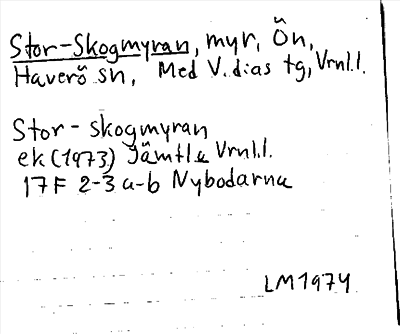 Stor-Skogmyran, myr, Ön,
Haverö sn, Med V. dias tg, Vrnl.l.
Stor-skogmyran
ek (1973) Jämtl & Vrnl.l.
17F 2-3 a-b Nybodarna
LM1974